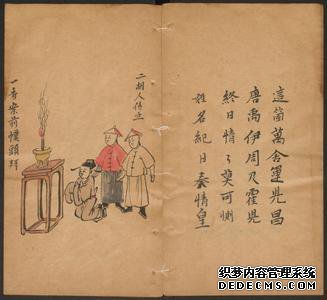 這箇萬舍運光昌
唐禹伊周及霍光
終日情々莫可惻
姓名紀日奏情皇
二胡人侍立
一香案前幞頭拜
织梦内容管理系统
DEDECMS.COM